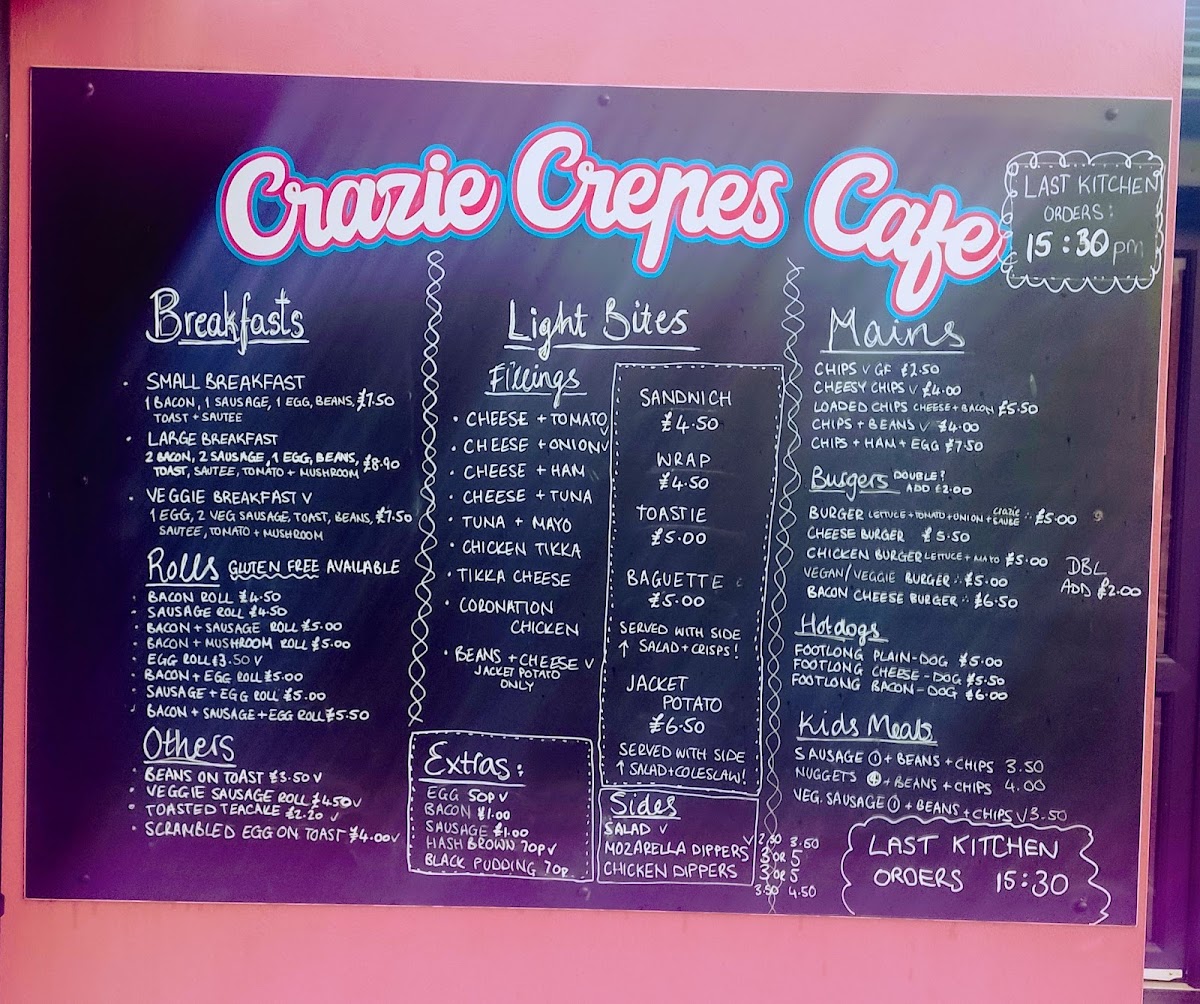 Crazie Crepes Cafe
LAST KITCHEN
ORDERS:
15:30 pm
Breakfasts
• SMALL BREAKFAST
1 BACON, 1 SAUSAGE, 1 EGG, BEANS, £7.50
TOAST + SAUTEE
• LARGE BREAKFAST
2 BACON, 2 SAUSAGE, 1 EGG, BEANS, £8.90
TOAST, SAUTEE, TOMATO + MUSHROOM
• VEGGIE BREAKFAST V
1 EGG, 2 VEG SAUSAGE, TOAST, BEANS, £7.50
SAUTEE, TOMATO + MUSHROOM
Rolls GLUTEN FREE AVAILABLE
• BACON ROLL £4.50
• SAUSAGE ROLL £4.50
• BACON + SAUSAGE ROLL £5.00
• BACON + MUSHROOM ROLL £5.00
• EGG ROLL £3.50 V
• BACON + EGG ROLL £5.00
• SAUSAGE + EGG ROLL £5.00
• BACON + SAUSAGE + EGG ROLL £5.50
Others
• BEANS ON TOAST £3.50 V
• VEGGIE SAUSAGE ROLL £4.50 V
• TOASTED TEACAKE £2.20 V
• SCRAMBLED EGG ON TOAST £4.00 V
Light Bites
Fillings
• CHEESE + TOMATO
• CHEESE + ONION V
• CHEESE + HAM
• CHEESE + TUNA
• TUNA + MAYO
• CHICKEN TIKKA
• TIKKA CHEESE
• CORONATION
CHICKEN
• BEANS + CHEESE V
JACKET POTATO
ONLY
SANDWICH
£4.50
WRAP
£4.50
TOASTIE
£5.00
BAGUETTE
£5.00
SERVED WITH SIDE
↑ SALAD + CRISPS!
JACKET
POTATO
£6.50
SERVED WITH SIDE
↑ SALAD + COLESLAW!
Extras:
EGG 50P V
BACON £1.00
SAUSAGE £1.00
HASH BROWN 70P V
BLACK PUDDING 70P
Sides
SALAD V
MOZARELLA DIPPERS V 3 OR 5
2.50 3.50
CHICKEN DIPPERS 3 OR 5
3.50 4.50
Mains
CHIPS V GF £2.50
CHEESY CHIPS V £4.00
LOADED CHIPS CHEESE + BACON £5.50
CHIPS + BEANS V £4.00
CHIPS + HAM + EGG £7.50
Burgers DOUBLE?
ADD £2.00
BURGER LETTUCE + TOMATO + ONION + CRAZIE SAUCE £5.00
CHEESE BURGER £5.50
CHICKEN BURGER LETTUCE + MAYO £5.00
VEGAN/VEGGIE BURGER £5.00
BACON CHEESE BURGER £6.50
DBL
ADD £2.00
Hotdogs
FOOTLONG PLAIN-DOG £5.00
FOOTLONG CHEESE-DOG £5.50
FOOTLONG BACON-DOG £6.00
Kids Meals
SAUSAGE ① + BEANS + CHIPS 3.50
NUGGETS ④ + BEANS + CHIPS 4.00
VEG. SAUSAGE ① + BEANS + CHIPS V 3.50
LAST KITCHEN
ORDERS 15:30